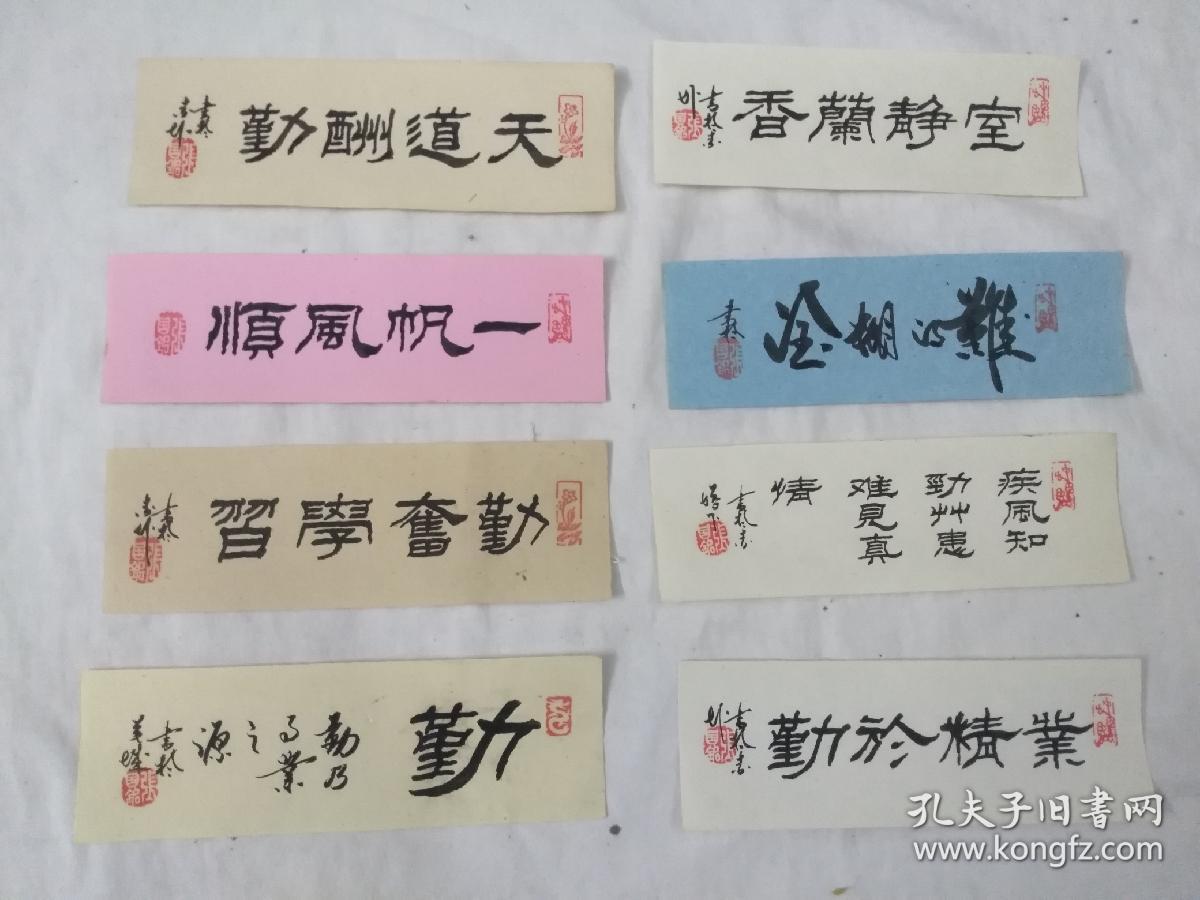 天道酬勤
室静蘭香
一帆風順
難得糊塗
勤奮學習
疾风知
勁艸患
难見真
情
勤
勤乃
事業
之
源
業精於勤
孔夫子旧书网
www.kongfz.com